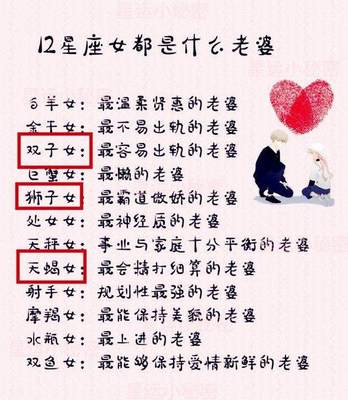 12星座女都是什么老婆
白羊女：最温柔贤惠的老婆
金牛女：最不易出轨的老婆
双子女：最容易出轨的老婆
巨蟹女：最懒的老婆
狮子女：最霸道傲娇的老婆
处女女：最神经质的老婆
天秤女：事业与家庭十分平衡的老婆
天蝎女：最会精打细算的老婆
射手女：规划性最强的老婆
摩羯女：最能保持美貌的老婆
水瓶女：最上进的老婆
双鱼女：最能够保持爱情新鲜的老婆